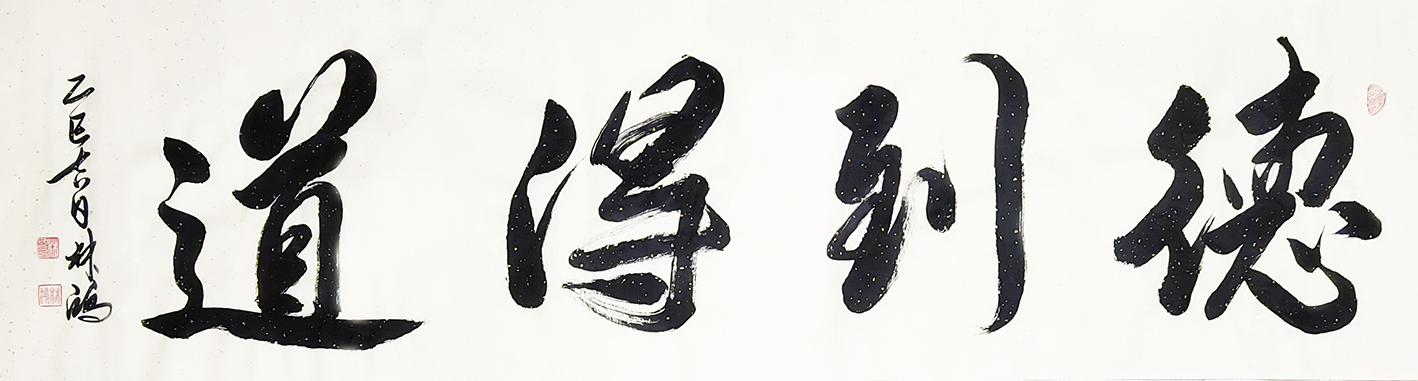 德到得道
乙巳吉日林鴻